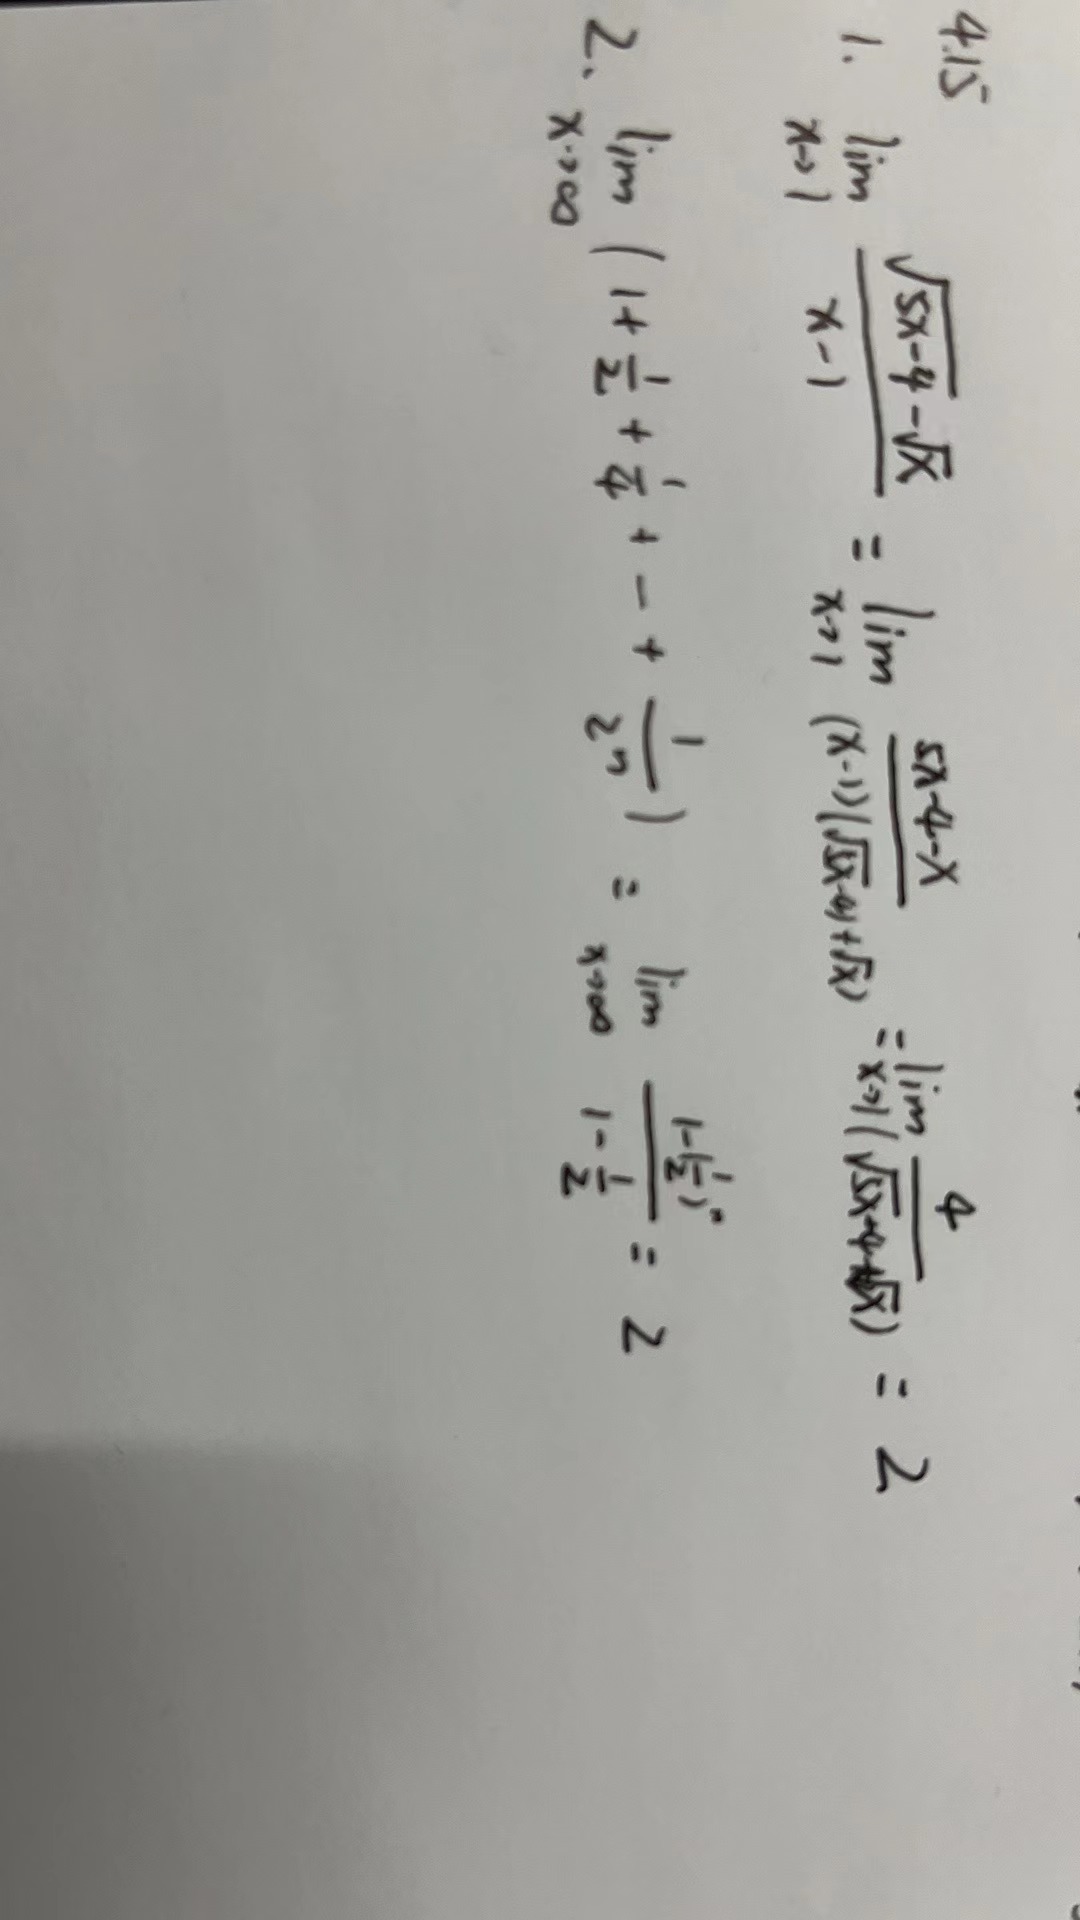 4.15
1. lim x→1 (√(5x-4) - √x)/(x-1) = lim x→1 (5x-4-x)/((x-1)(√(5x-4)+√x)) = lim x→1 4/(√(5x-4)+√x) = 2
2. lim x→∞ (1 + 1/2 + 1/4 + - + 1/2ⁿ) = lim x→∞ (1-(1/2)ⁿ)/(1-1/2) = 2